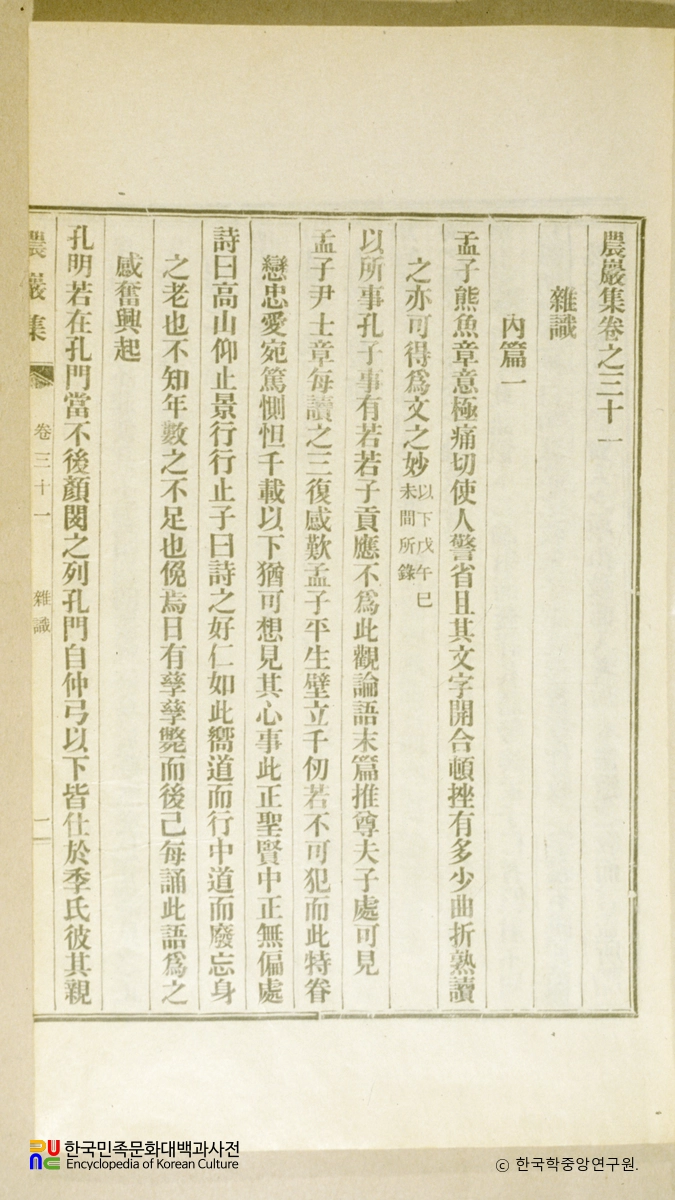 農巖集卷之三十一
雜識
內篇一
孟子熊魚章意極痛切使人警省且其文字開合頓挫有多少曲折熟讀
之亦可得爲文之妙以下戊午己未間所錄
以所事孔子事有若若子貢應不爲此觀論語末篇推尊夫子處可見
孟子尹士章每讀之三復感歎孟子平生壁立千仞若不可犯而此特眷
戀忠愛宛篤惻怛千載以下猶可想見其心事此正聖賢中正無偏處
詩曰高山仰止景行行止子曰詩之好仁如此嚮道而行中道而廢忘身
之老也不知年數之不足也俛焉日有孶孶斃而後已每誦此語爲之
感奮興起
孔明若在孔門當不後顏閔之列孔門自仲弓以下皆仕於季氏彼其親
農巖集 卷三十一 雜識 一
한국민족문화대백과사전
Encyclopedia of Korean Culture
© 한국학중앙연구원.